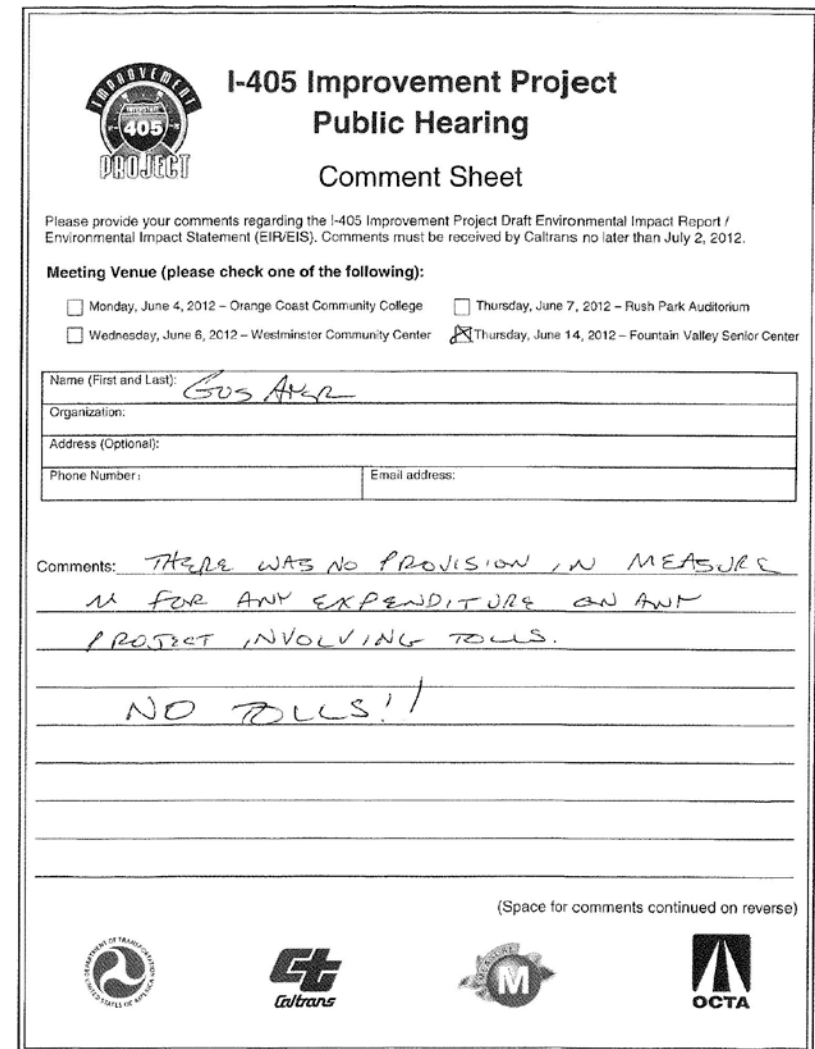 IMPROVEMENT
405
PROJECT
I-405 Improvement Project
Public Hearing
Comment Sheet
Please provide your comments regarding the I-405 Improvement Project Draft Environmental Impact Report /
Environmental Impact Statement (EIR/EIS). Comments must be received by Caltrans no later than July 2, 2012.
Meeting Venue (please check one of the following):
Monday, June 4, 2012 – Orange Coast Community College
Thursday, June 7, 2012 – Rush Park Auditorium
Wednesday, June 6, 2012 – Westminster Community Center
Thursday, June 14, 2012 – Fountain Valley Senior Center
Name (First and Last): GUS
Organization:
Address (Optional):
Phone Number:
Email address:
Comments: THERE WAS NO PROVISION IN MEASURE
M FOR ANY EXPENDITURE ON ANY
PROJECT INVOLVING TOLLS.
NO TOLLS!!
(Space for comments continued on reverse)
DEPARTMENT OF TRANSPORTATION
UNITED STATES OF AMERICA
Ct
Caltrans
MEASURE
M
OCTA